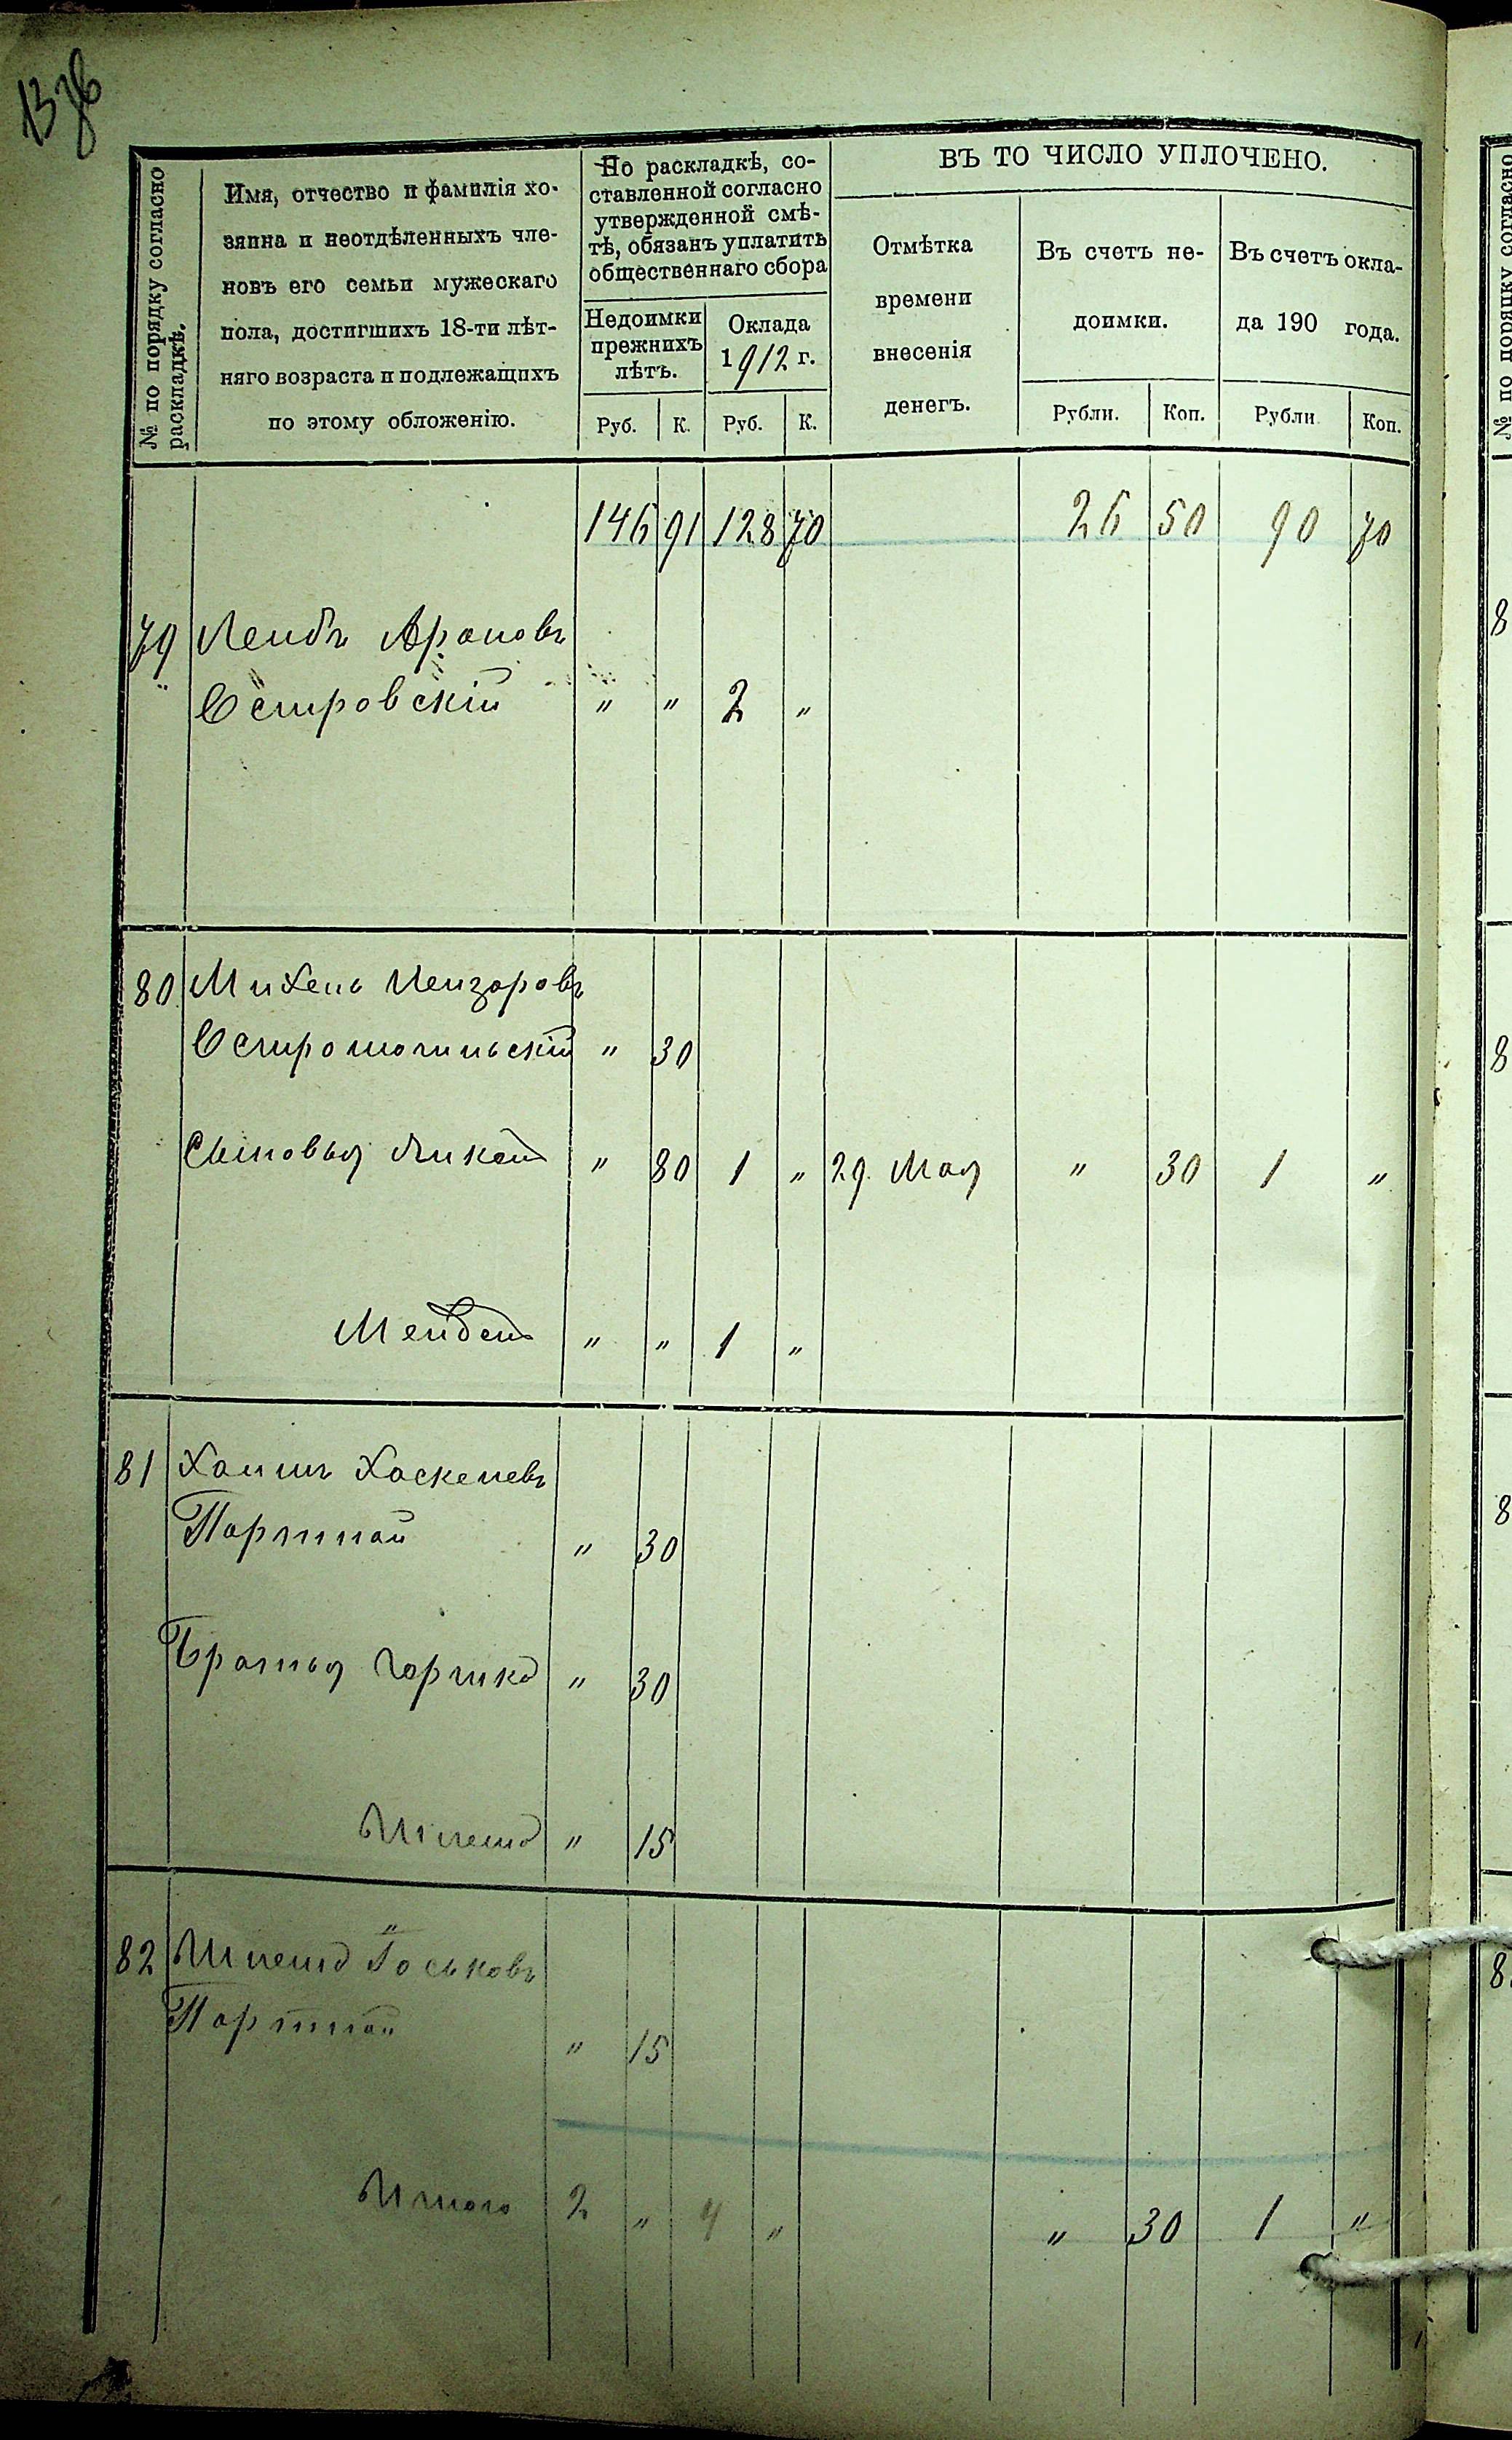 № по порядку согласно
раскладкѣ.
Имя, отчество и фамилія хо-
зяина и неотдѣленныхъ чле-
новъ его семьи мужескаго
пола, достигшихъ 18-ти лѣт-
няго возраста и подлежащихъ
по этому обложенію.
По раскладкѣ, со-
ставленной согласно
утвержденной смѣ-
тѣ, обязанъ уплатить
общественнаго сбора
Недоимки
прежнихъ
лѣтъ.
Оклада
1912 г.
Руб. К. Руб. К.
ВЪ ТО ЧИСЛО УПЛОЧЕНО.
Отмѣтка
времени
внесенія
денегъ.
Въ счетъ не-
доимки.
Въ счетъ окла-
да 190 года.
Рубли. Коп. Рубли Коп.
146 91 128 70 26 50 90 70
79 Лейбъ Ароновъ
Островскій " " 2 "
80 Михель Лейзоровъ
Остромогильскій " 30
Сыновья Ицко " 80 1 " 29 Мая " 30 1 "
Мендель " " 1 "
81 Хаимъ Хаскелевъ
Портной " 30
Братья Гершко " 30
Шлема " 15
82 Шлема Іоськовъ
Портной " 15
Итого 2 " 4 " " 30 1 "
№ по порядку согласно